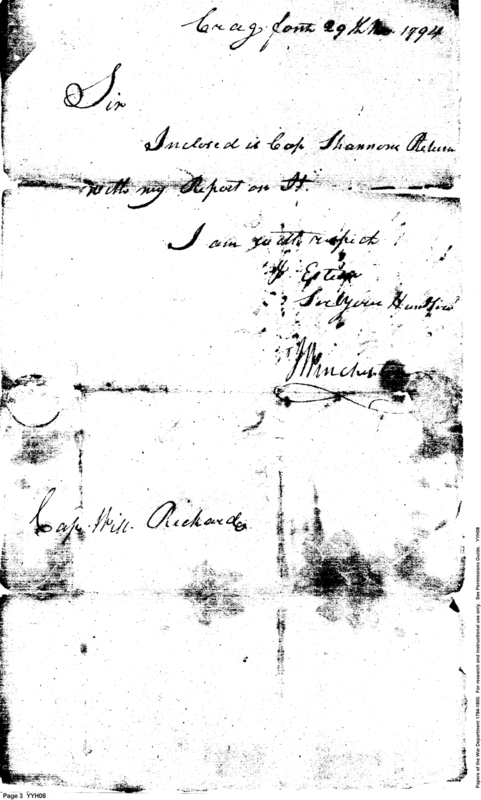 Cragfont 29th Nov. 1794
Sir
Inclosed is Cap Shannons Return
with my Report on It.
I am with respect
& Esteem
Sir Your Humb
JWinches
Cap. Will. Rickard
Papers of the War Department 1784-1800. For research and instructional use only. See Permissions Guide. YYH08
Page 3 YYH08